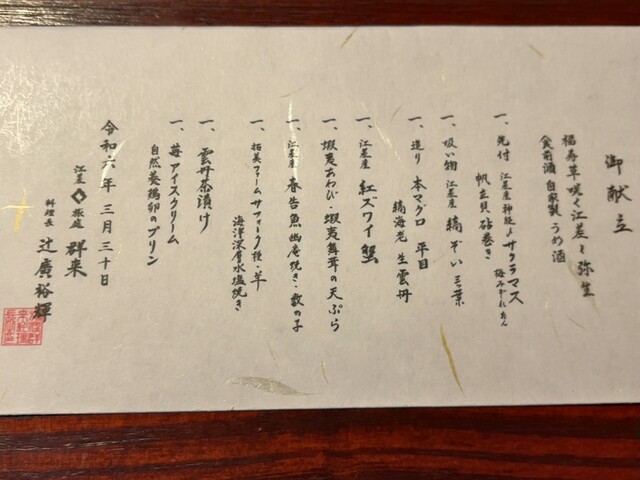 御献立
福寿草咲く江差と弥生
食前酒 自家製 うめ酒
一、先付 江差産神経〆サクラマス
帆立貝砧巻き 梅みぞれあん
一、吸い物 江差産 縞ぞい 三葉
一、造り 本マグロ 平目
縞海老 生雲丹
一、江差産 紅ズワイ蟹
一、蝦夷あわび・蝦夷舞茸の天ぷら
一、江差産 春告魚幽庵焼き・数の子
一、拓美ファームサフォーク種・羊
海洋深層水塩焼き
一、雲丹茶漬け
一、苺アイスクリーム
自然養鶏卵のプリン
令和六年 三月三十日
江差 旅庭 群来
料理長 辻廣裕輝